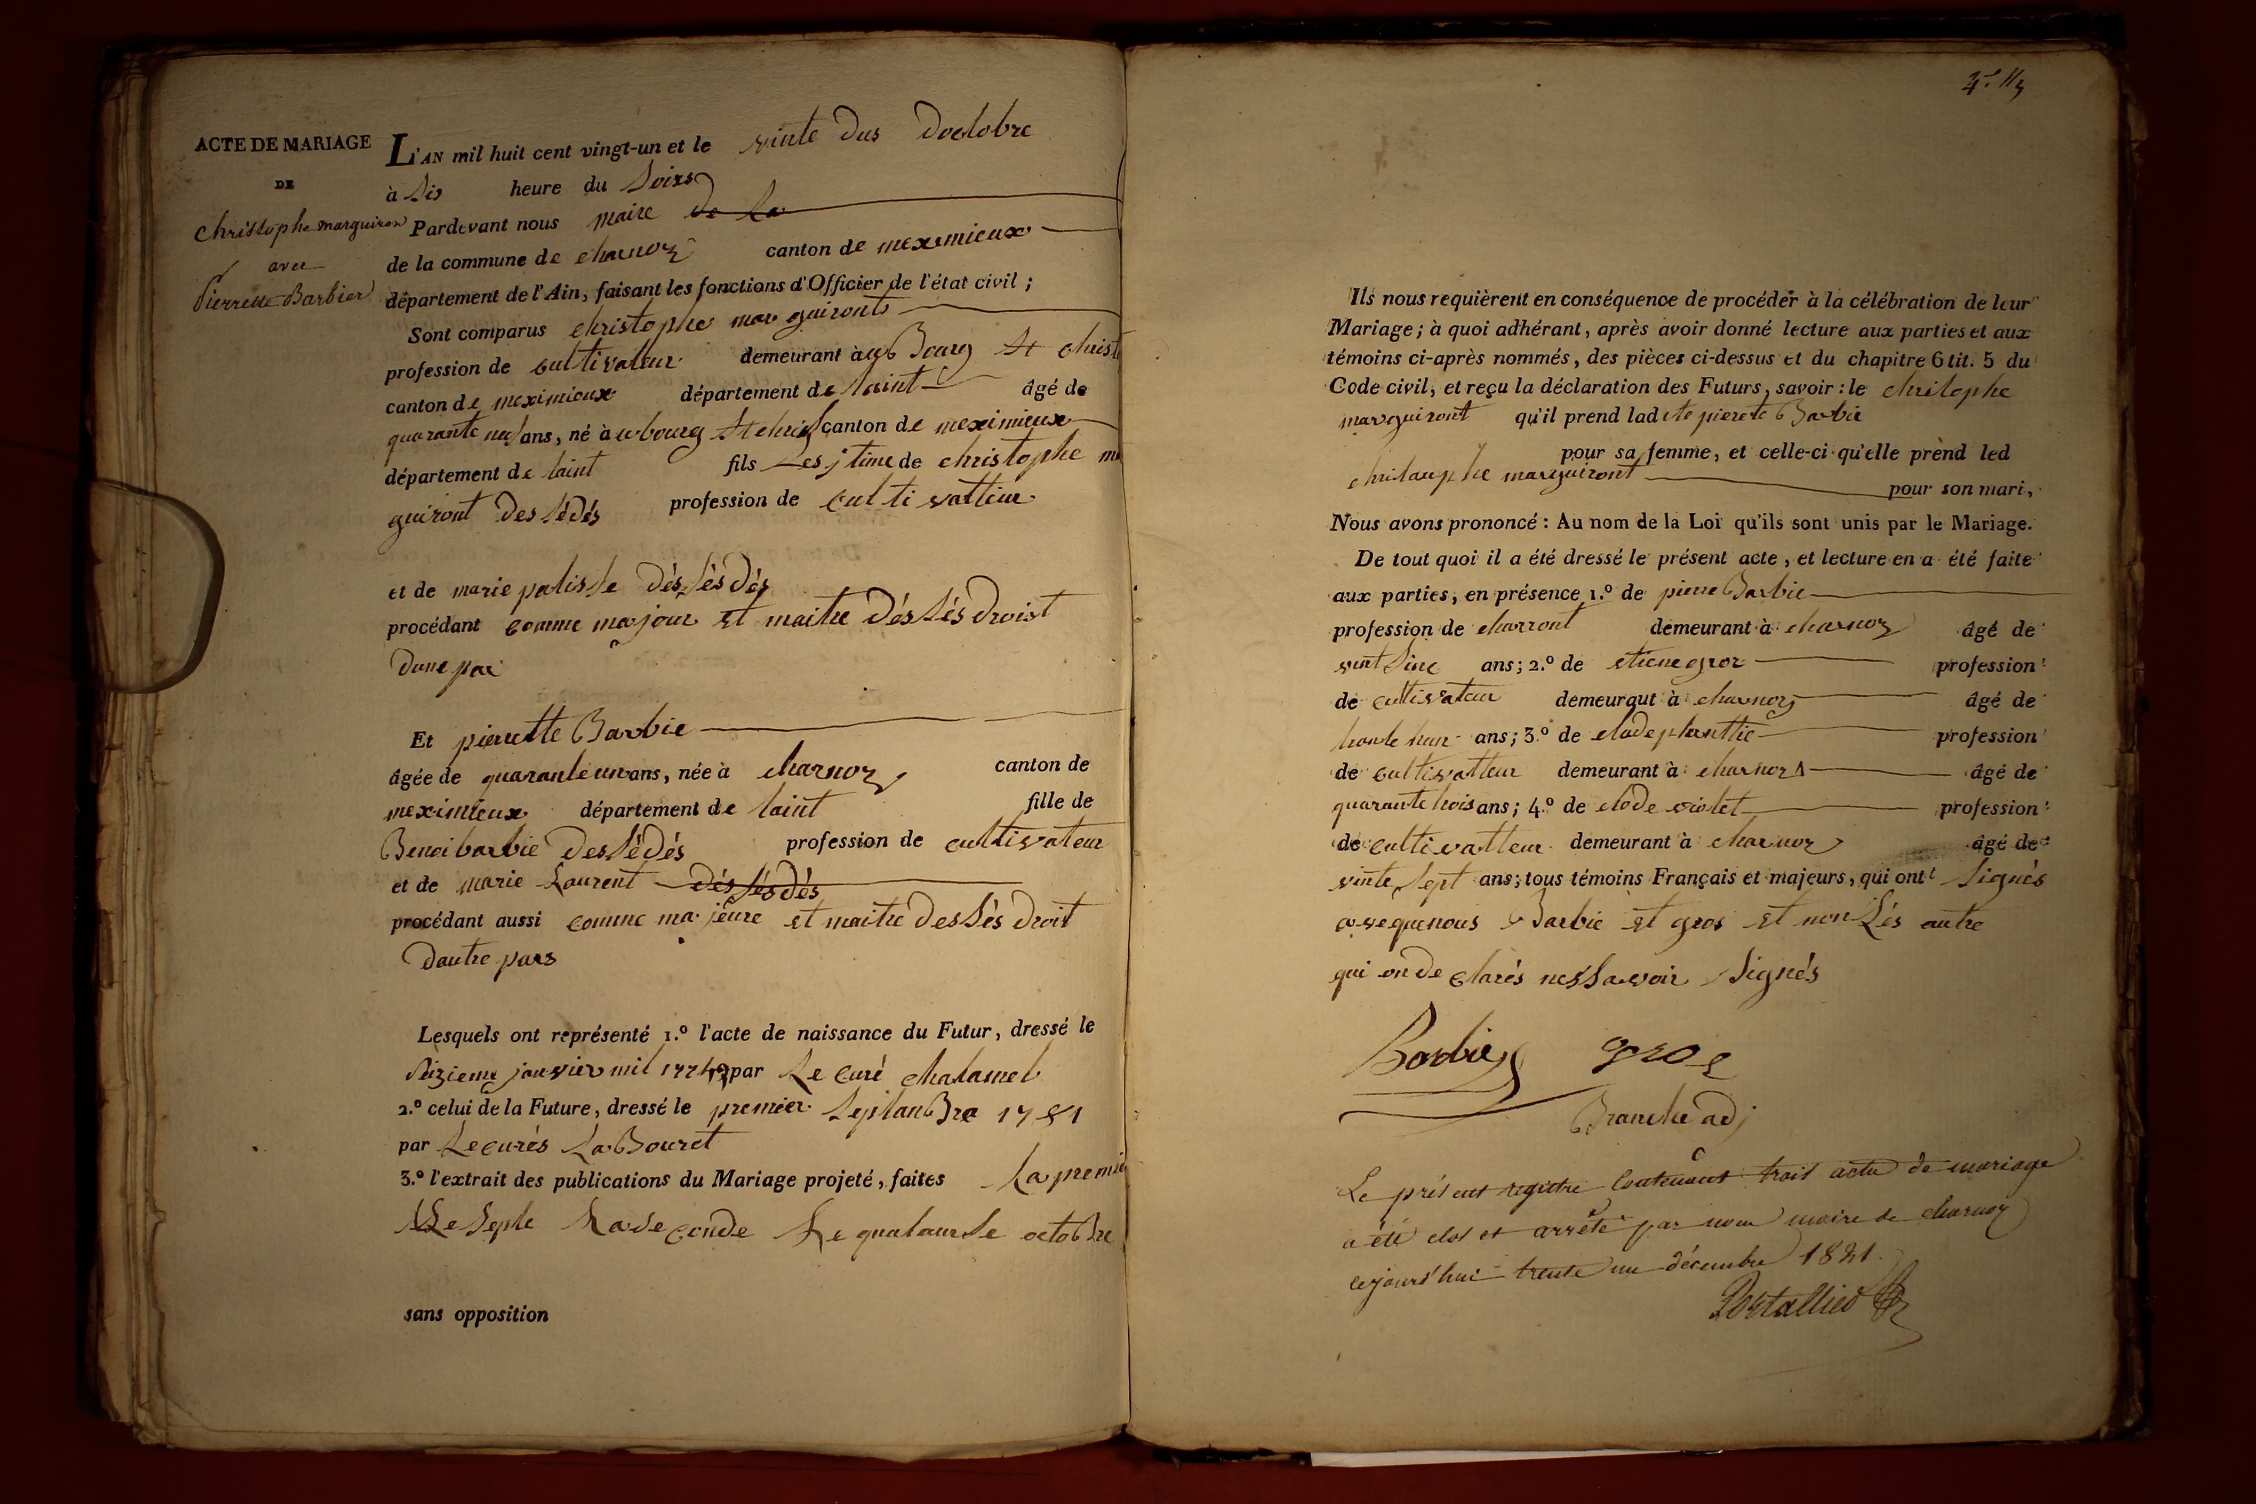 ACTE DE MARIAGE
DE
Christophe marguiron
avec
Pierrette Barbier
L'AN mil huit cent vingt-un et le vinte dus doctobre
à sis heure du soirs
Pardevant nous maire de la
de la commune de charnoz canton de meximieux
département de l'Ain, faisant les fonctions d'Officier de l'état civil ;
Sont comparus christophe mar guiront
profession de cultivateur demeurant à au Bourg St christ
canton de meximieux département de laint âgé de
quarante neuf ans, né à u bourg St christ canton de meximieux
département de laint fils Lesjtime de christophe mar
guiront des sédés profession de culti vatteur
et de marie palisse dés sés dés
procédant comme majour et maitre dés sés droist
dune par
Et pierrette Barbie
âgée de quarante un ans, née à charnoz canton de
meximieux département de laint fille de
Benoi barbie des sédés profession de cultivateur
et de marie Laurent dés sés dés
procédant aussi comme ma jeure et maitre des sés droit
dautre pars
Lesquels ont représenté 1.º l'acte de naissance du Futur, dressé le
janvier mil par Le curé chalamel
2.º celui de la Future, dressé le premier septanBre 1781
par Le curés LaBouret
3.º l'extrait des publications du Mariage projeté, faites La premie
Le septe La se conde Le quatourse octoBre
sans opposition
Ils nous requièrent en conséquence de procéder à la célébration de leur
Mariage ; à quoi adhérant, après avoir donné lecture aux parties et aux
témoins ci-après nommés, des pièces ci-dessus et du chapitre 6 tit. 5 du
Code civil, et reçu la déclaration des Futurs, savoir : le christophe
marguiront qu'il prend ladite pierete Barbie
pour sa femme, et celle-ci qu'elle prènd led
christauphe marguiront pour son mari,
Nous avons prononcé : Au nom de la Loi qu'ils sont unis par le Mariage.
De tout quoi il a été dressé le présent acte, et lecture en a été faite
aux parties, en présence 1.º de pierre Barbie
profession de charront demeurant à charnoz âgé de
vint sinc ans ; 2.º de etiene groz profession
de cultivateur demeuraut à charnoz âgé de
trante hun ans ; 3.º de clode planttie profession
de cultivatteur demeurant à charnoz âgé de
quarante trois ans ; 4.º de clode violet profession
de cultivatteur demeurant à charnoz âgé de
vinte sept ans ; tous témoins Français et majeurs, qui ont signés
a veque nous Barbie et gros et non Lés autre
qui on de clarés nes savoir signés
Barbie groz
Branche adj
Le présent registre contenant trois actes de mariage
a été clos et arrêté par nous maire de charnoz
cejourd'hui trente un décembre 1821.
Portallier